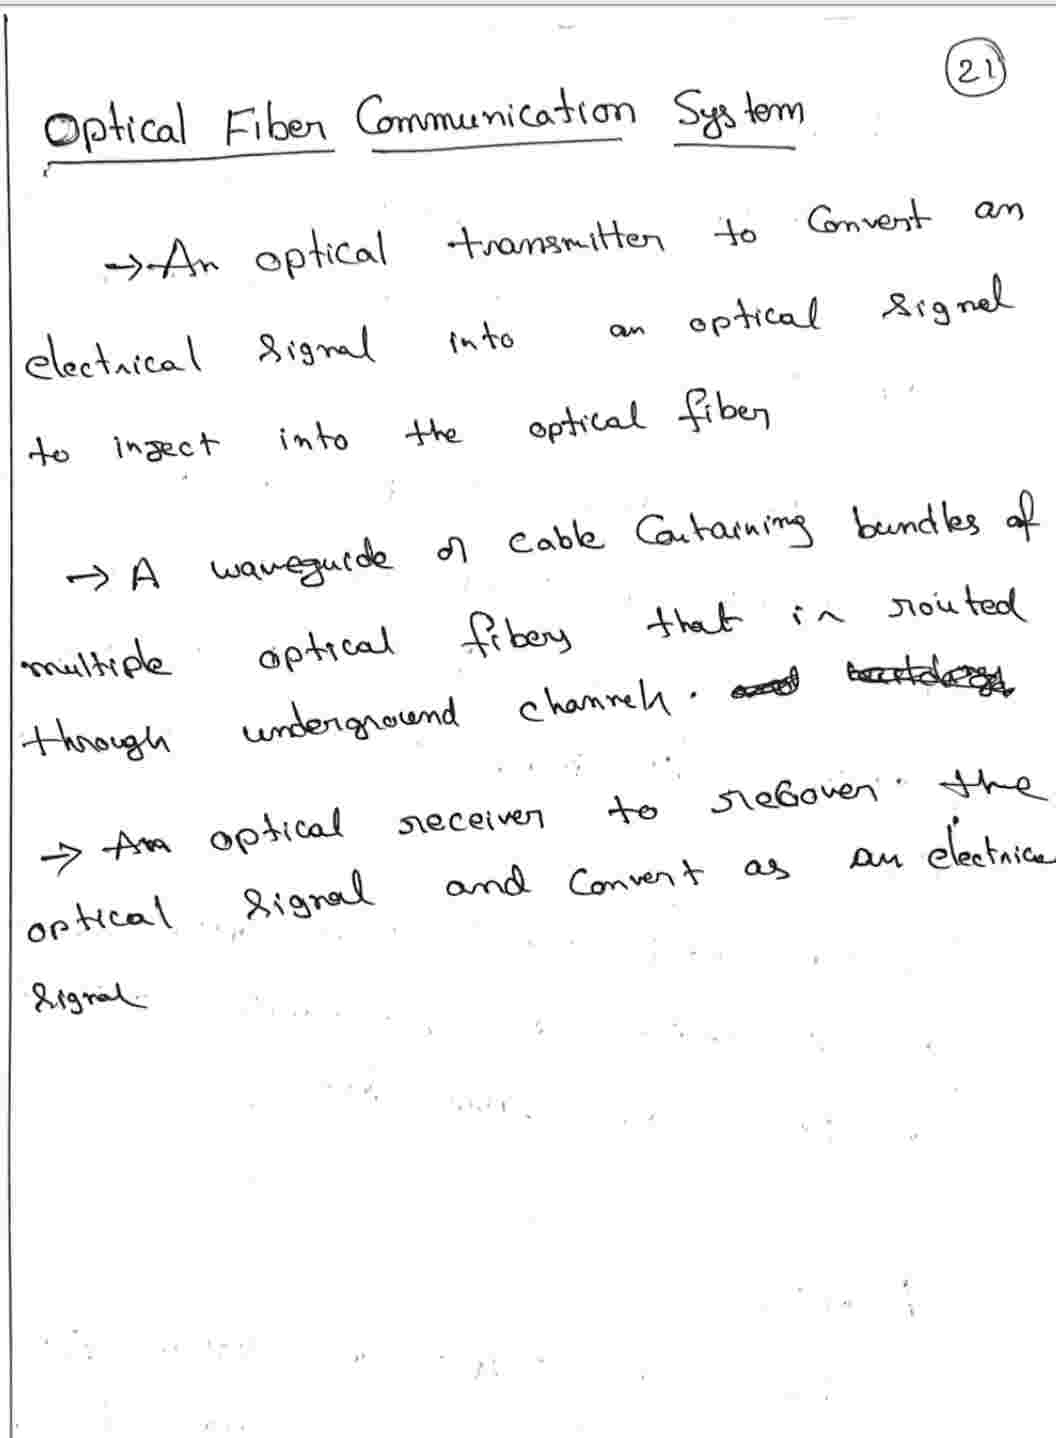 21
Optical Fiber Communication System
→ An optical transmitter to Convert an
electrical signal into an optical signal
to inject into the optical fiber
→ A waveguide or Cable Containing bundles of
multiple optical fibers that in routed
through underground channels.
→ An optical receiver to recover the
optical signal and Convert as an electrica
signal